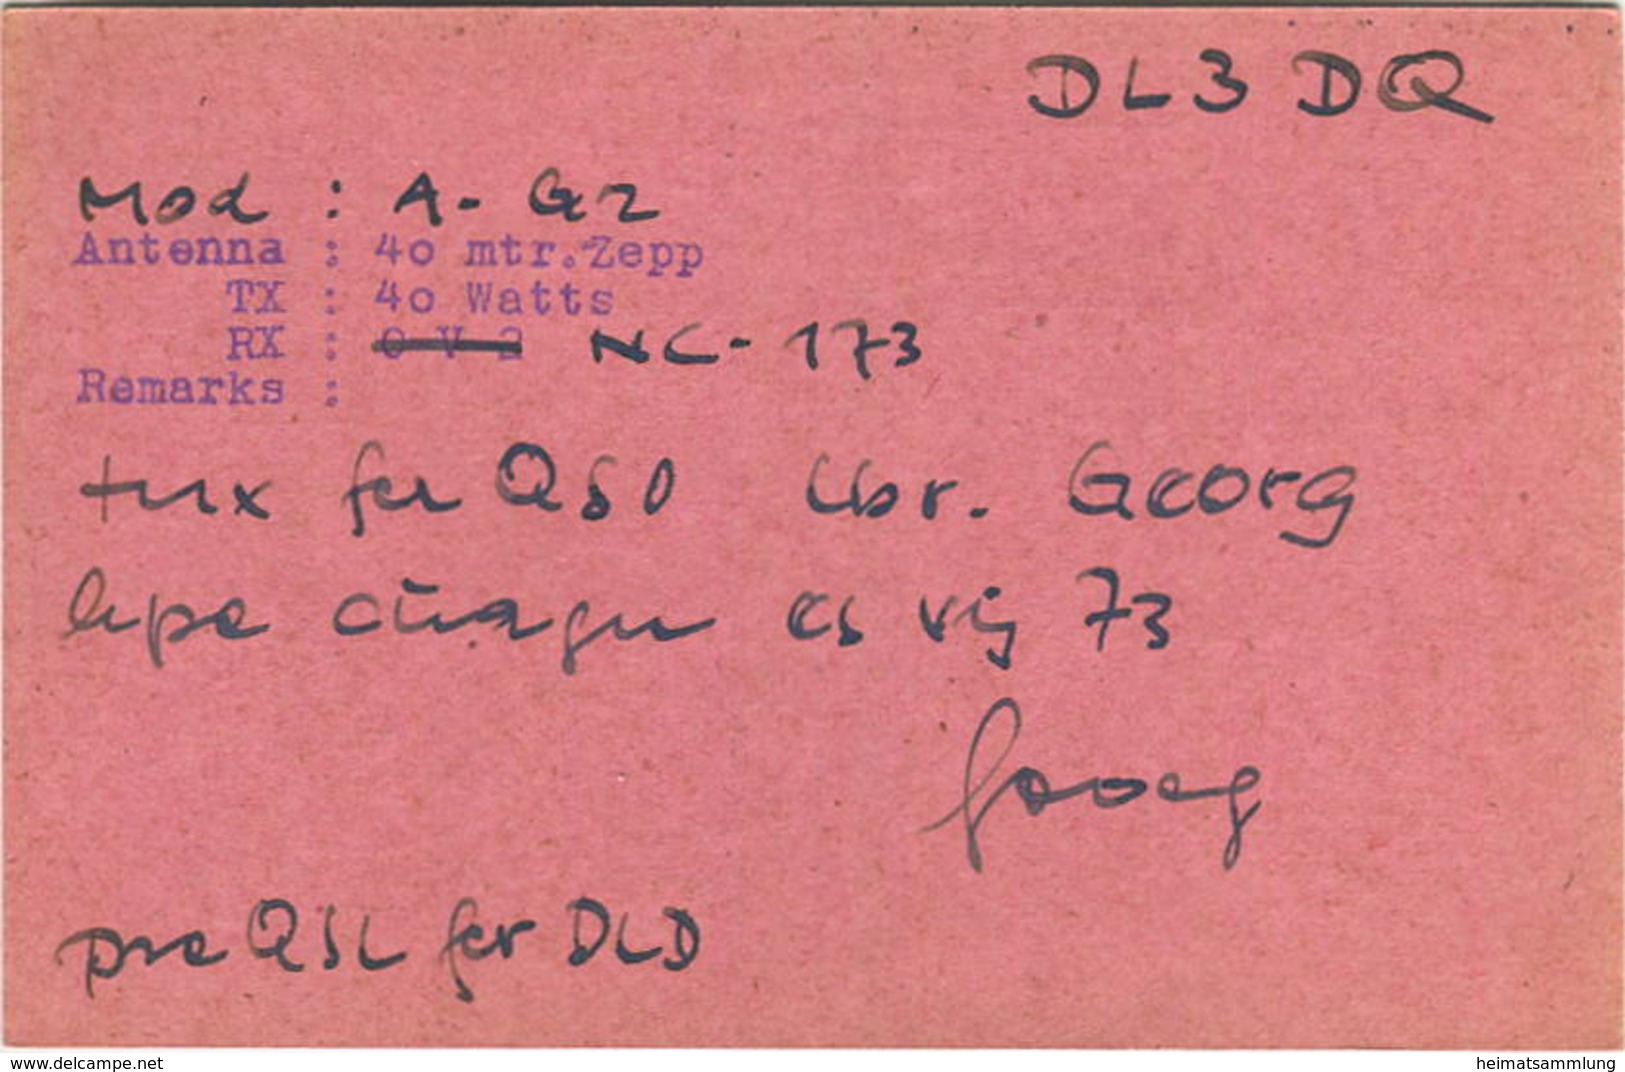 DL3DQ
Mod : A- G2
Antenna : 40 mtr.Zepp
TX : 40 Watts
RX : 0 V 2 NC-173
Remarks :
tnx fer QSO lbr. Georg
hpe cuagn es vy 73
Georg
pse QSL fer DLD
www.delcampe.net
heimatsammlung